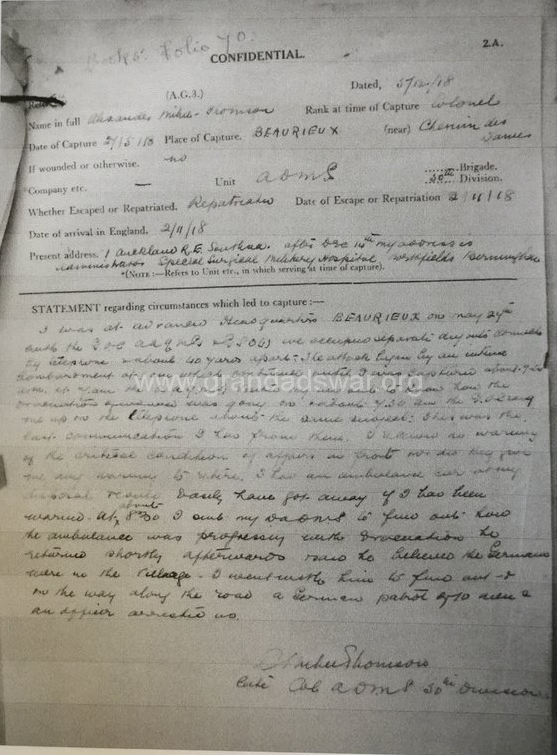 Books: Folio 70.
CONFIDENTIAL.
2.A.
(A.G.3.)
Dated, 5/12/18
Name in full Alexander Milne-Thomson Rank at time of Capture Colonel
Date of Capture 27/5/18 Place of Capture. BEAURIEUX (near) Chemin des Dames
If wounded or otherwise. no
*Company etc. — Unit ADMS Brigade.
50th Division.
Whether Escaped or Repatriated. Repatriated Date of Escape or Repatriation 2/11/18
Date of arrival in England. 2/11/18
Present address. 1 Auckland Rd. Southsea. after Dec 14th my address is
Administrator Special Surgical Military Hospital, Northfields Birmingham
*(NOTE:—Refers to Unit etc., in which serving at time of capture).
STATEMENT regarding circumstances which led to capture:—
I was at advanced Headquarters BEAURIEUX on May 27th
with the G.O.C. we occupied separate dug outs connected
by telephone & about 40 yards apart. The attack began by an intense
bombardment which continued until I was captured about
www.grandadswar.org
evacuation was going on
me up on the telephone about the same subject: this was the
last communication I had from them. I received no warning
of the critical condition of affairs in front nor did they give
me any warning to retire. I had an ambulance car at my
disposal & could easily have got away if I had been
warned. At about 8.30 I sent my DADMS to find out how
the ambulance was progressing with evacuation he
returned shortly afterwards & said he believed the Germans
were in the village. I went with him to find out &
on the way along the road a German patrol of 10 men &
an officer arrested us.
Milne Thomson
Col ADMS 50th Division